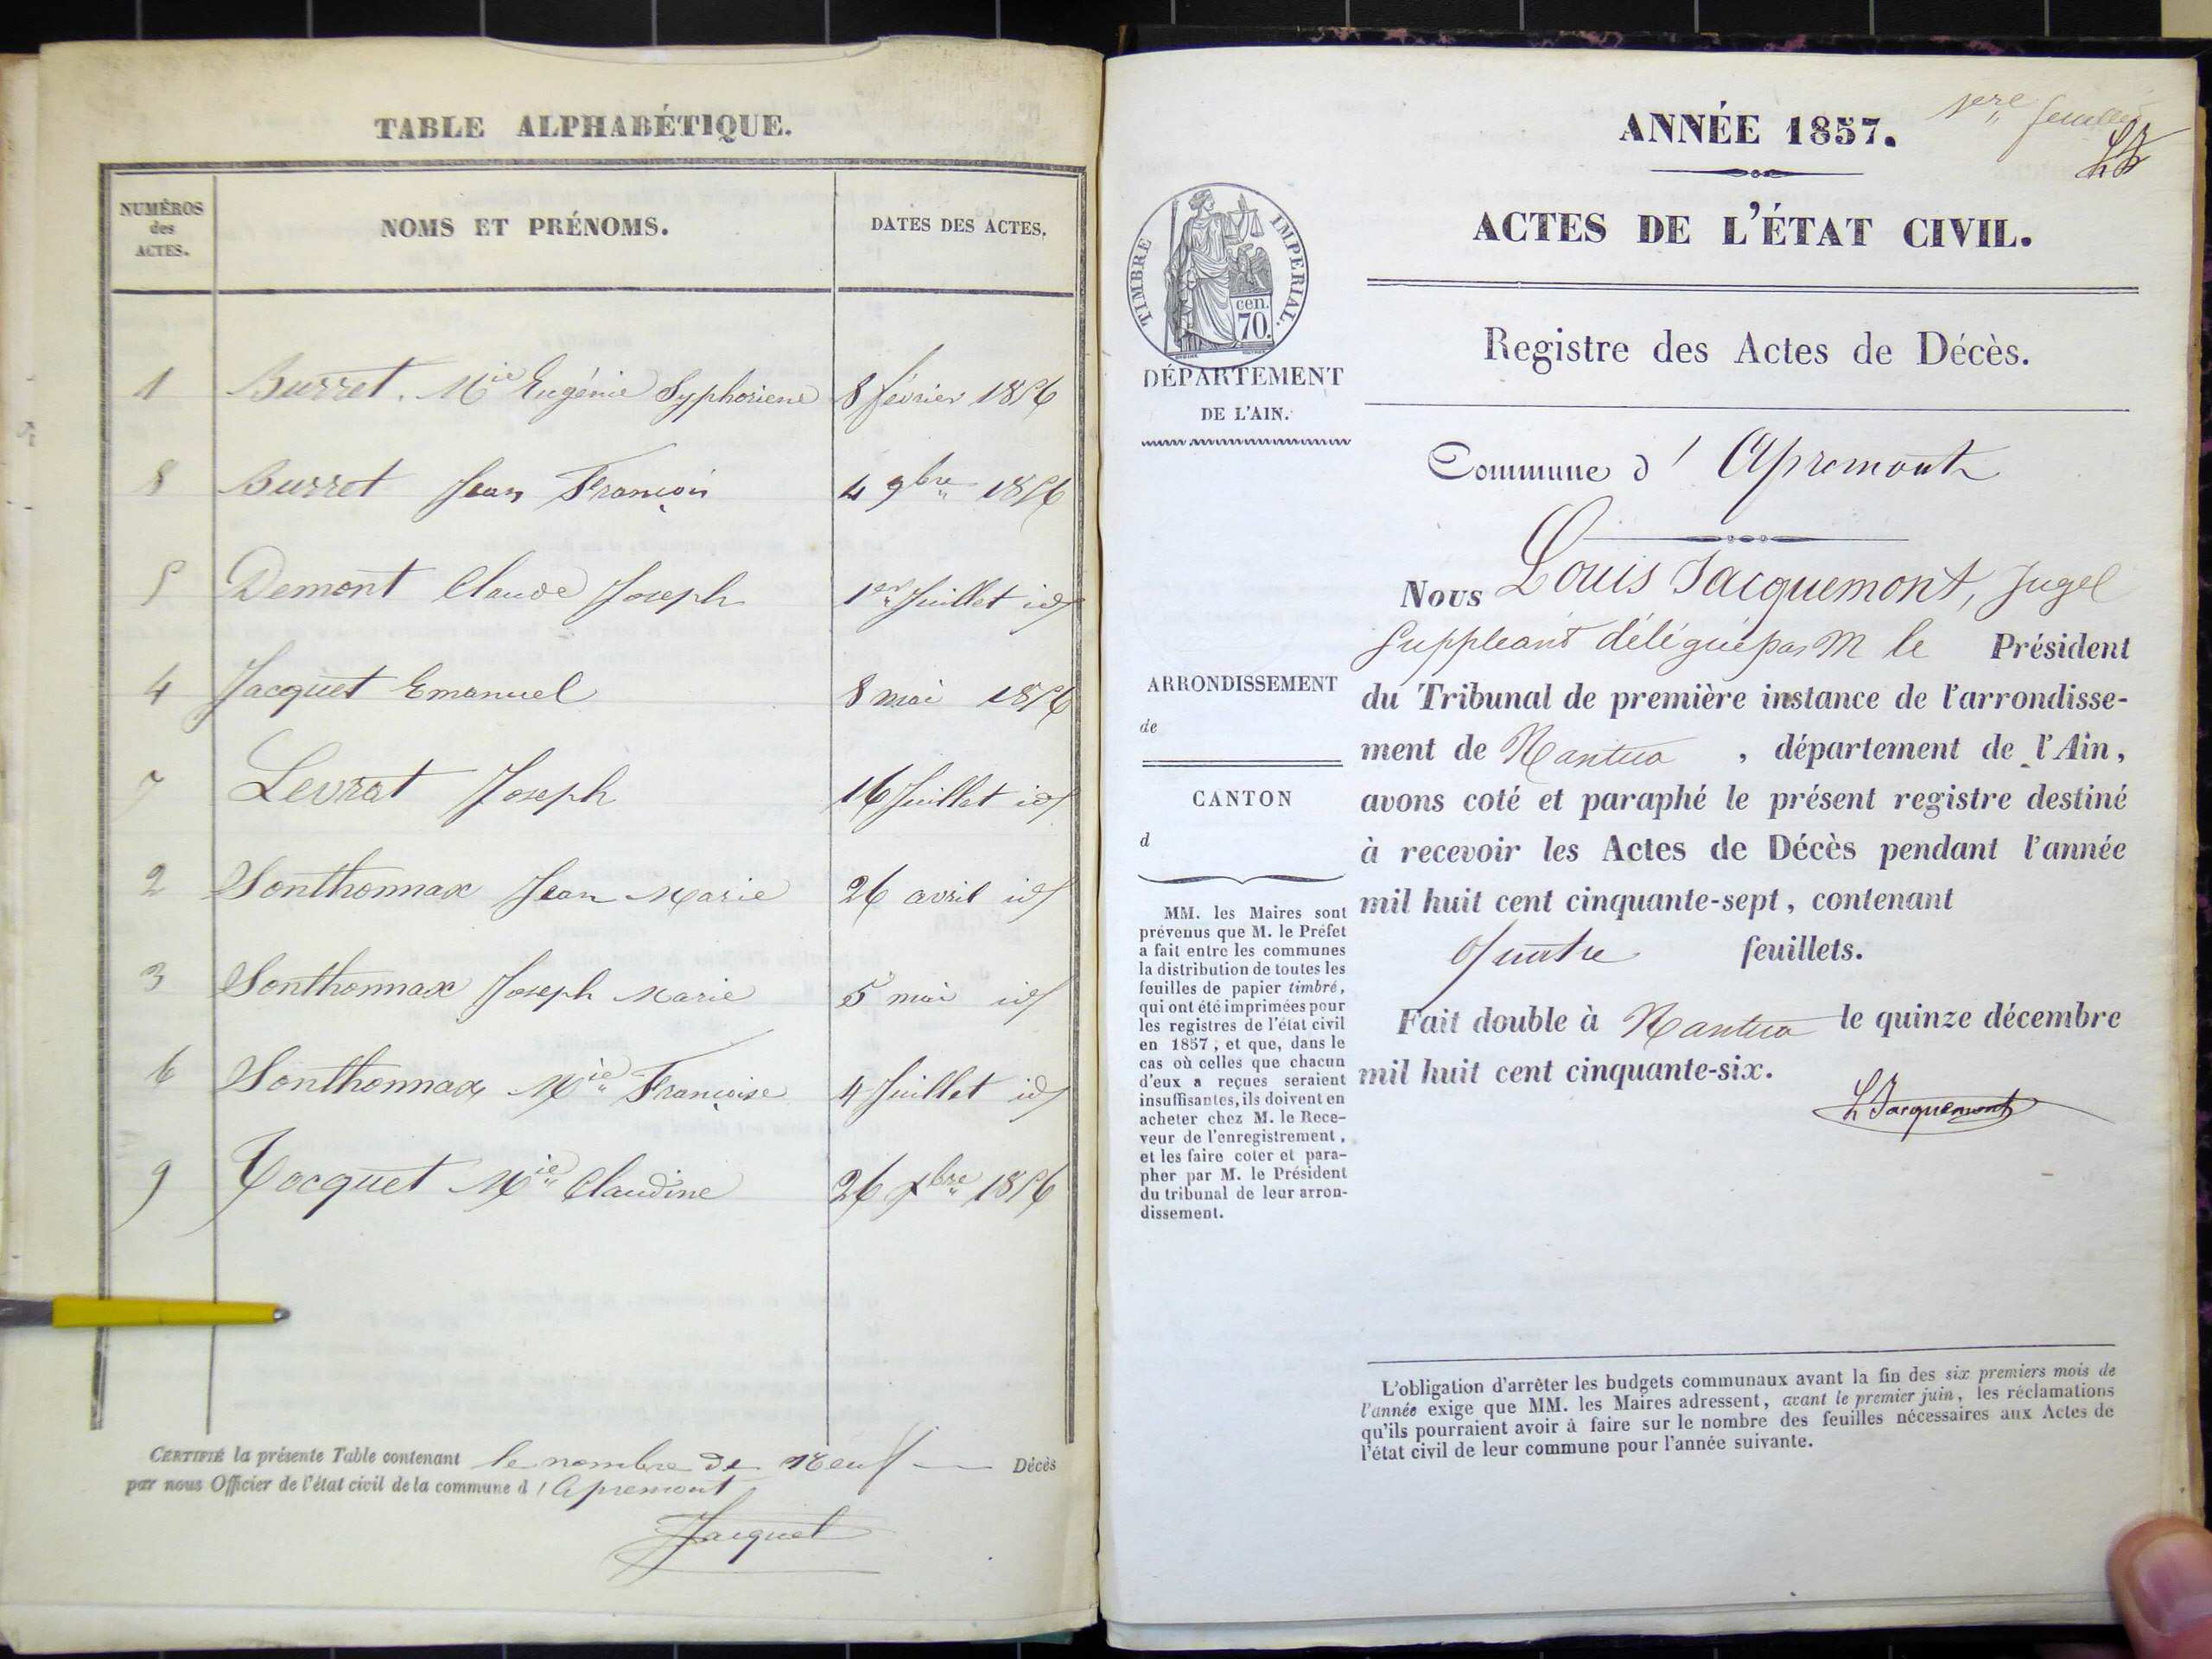 TABLE ALPHABÉTIQUE.
NUMÉROS
des
ACTES.
NOMS ET PRÉNOMS.
DATES DES ACTES.
1 Burret. Mie Eugénie Syphoriene 8 février 1856
8 Burret Jean François 4 9bre 1856
5 Demont Claude Joseph 1er Juillet id
4 Jacquet Emanuel 8 mai 1856
7 Levrat Joseph 16 Juillet id
2 Sonthonnax Jean Marie 26 avril id
3 Sonthonnax Joseph Marie 5 mai id
6 Sonthonnax Mie Françoise 4 Juillet id
9 Tocquet Mie Claudine 26 xbre 1856
CERTIFIÉ la présente Table contenant le nombre de neuf Décès
par nous Officier de l'état civil de la commune d'Apremont
Jacquet
1ere feuillet
LJ
ANNÉE 1857.
ACTES DE L'ÉTAT CIVIL.
TIMBRE IMPERIAL.
cen.
70.
DÉPARTEMENT
DE L'AIN.
Registre des Actes de Décès.
Commune d' Apremont
Nous Louis Jacquemont, Juge
Suppléant délégué par M le Président
du Tribunal de première instance de l'arrondisse-
ment de Nantua, département de l'Ain,
avons coté et paraphé le présent registre destiné
à recevoir les Actes de Décès pendant l'année
mil huit cent cinquante-sept, contenant
Quatre feuillets.
Fait double à Nantua le quinze décembre
mil huit cent cinquante-six.
L Jacquemont
ARRONDISSEMENT
de
CANTON
d
MM. les Maires sont
prévenus que M. le Préfet
a fait entre les communes
la distribution de toutes les
feuilles de papier timbré,
qui ont été imprimées pour
les registres de l'état civil
en 1857; et que, dans le
cas où celles que chacun
d'eux a reçues seraient
insuffisantes, ils doivent en
acheter chez M. le Rece-
veur de l'enregistrement,
et les faire coter et para-
pher par M. le Président
du tribunal de leur arron-
dissement.
L'obligation d'arrêter les budgets communaux avant la fin des six premiers mois de
l'année exige que MM. les Maires adressent, avant le premier juin, les réclamations
qu'ils pourraient avoir à faire sur le nombre des feuilles nécessaires aux Actes de
l'état civil de leur commune pour l'année suivante.